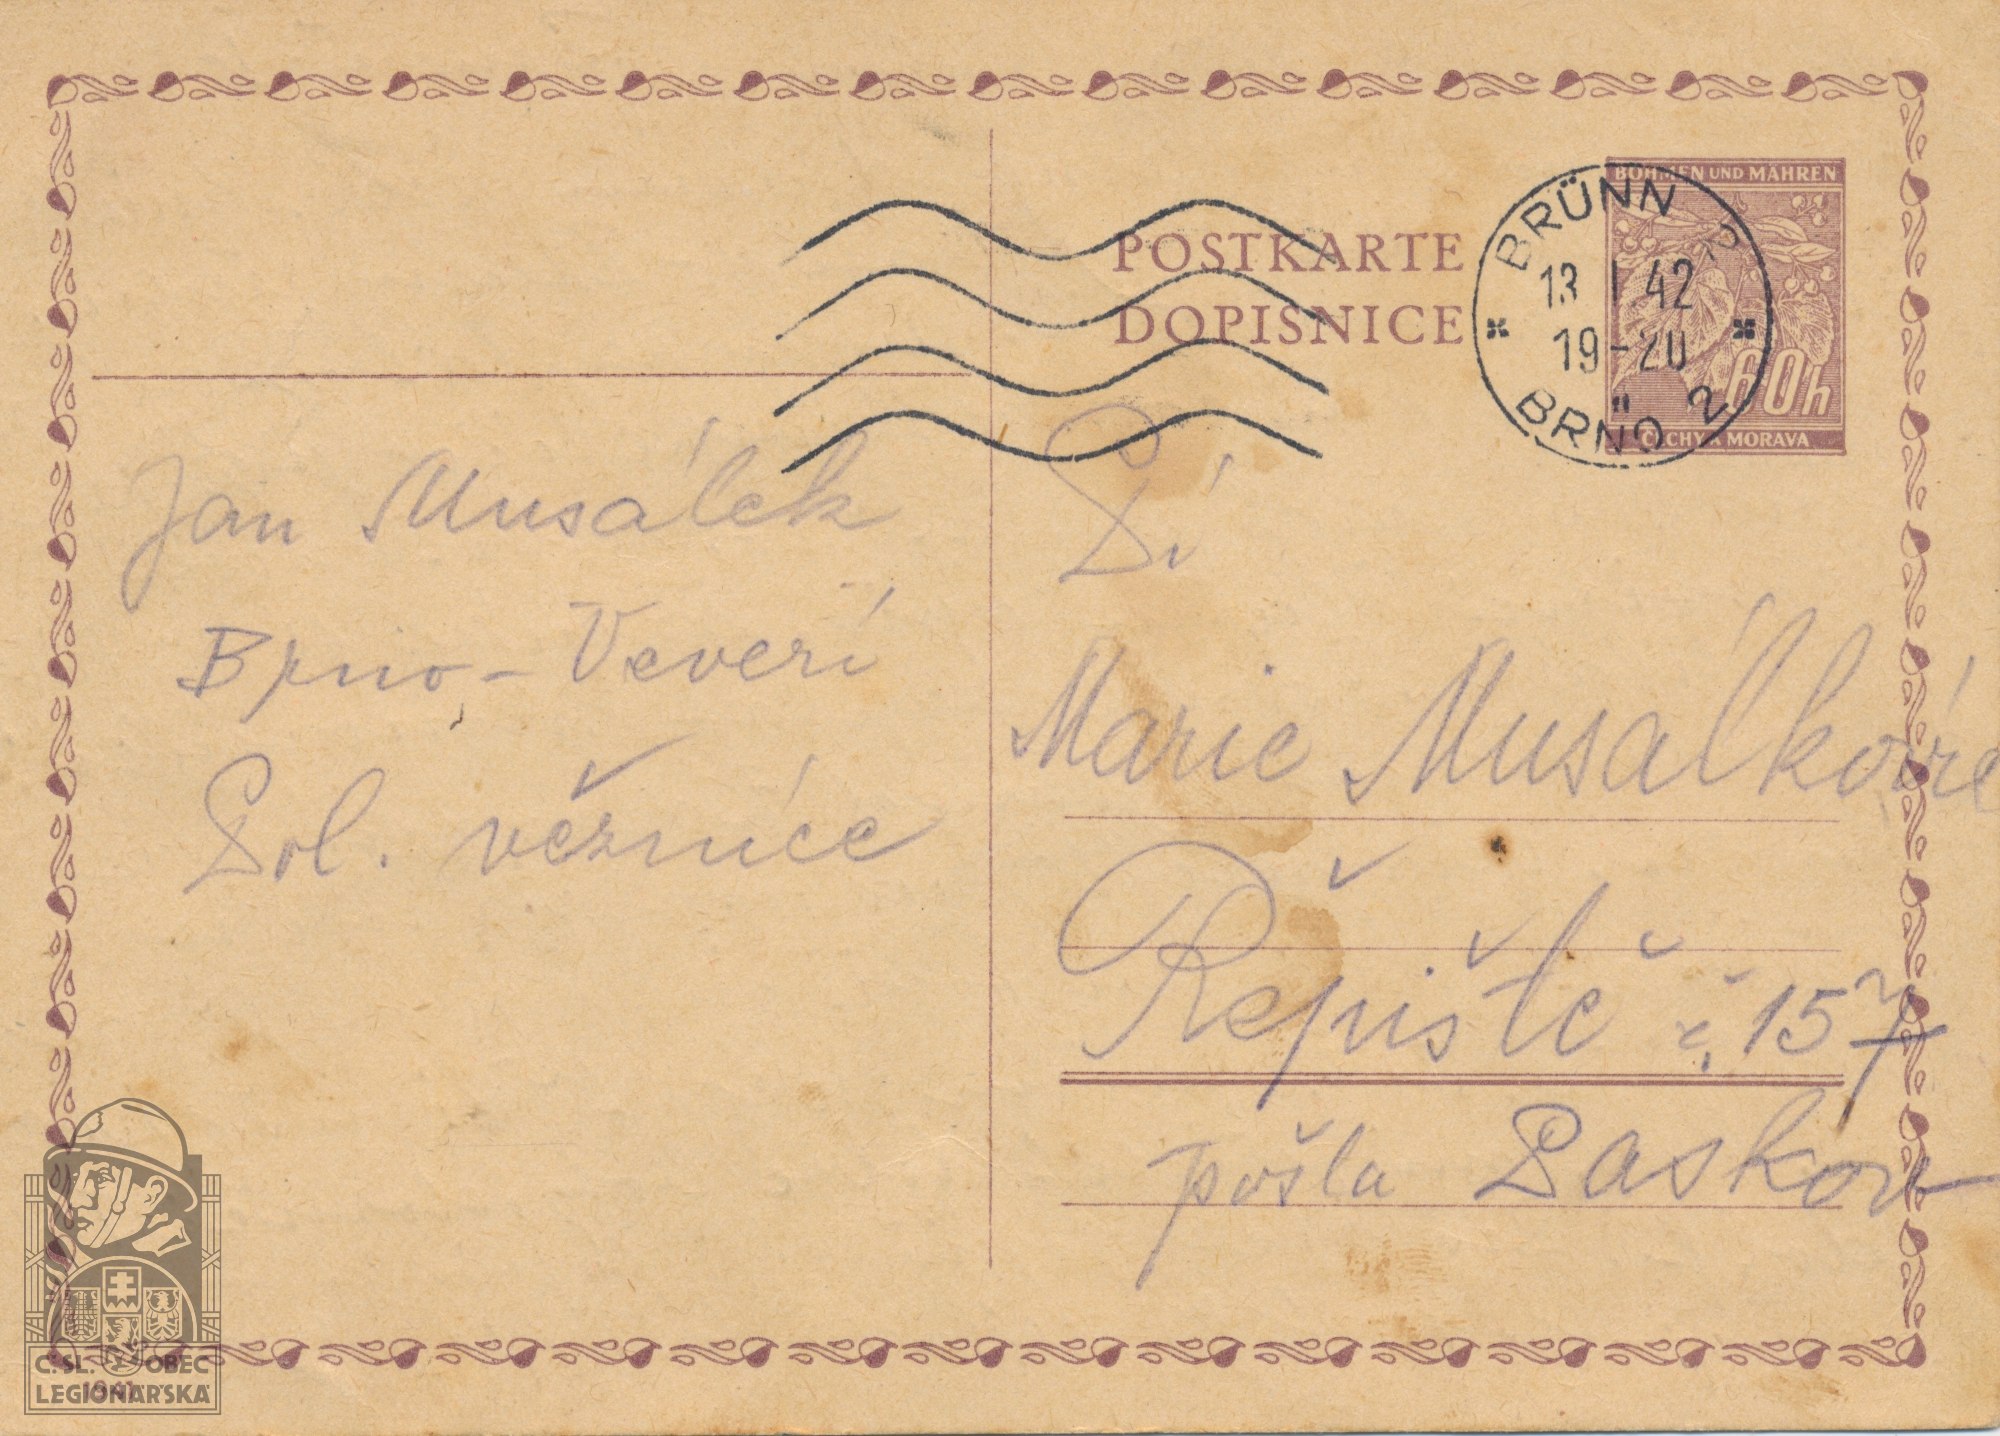 BÖHMEN UND MÄHREN
POSTKARTE
DOPISNICE
BRÜNN 2
13 I 42
19-20
BRNO 2
60h
ČECHY A MORAVA
Jan Musálek
Brno-Veveří
Pol. věznice
Pí
Marie Musálková
Řepiště č. 157
pošta Paskov
Č. SL. OBEC
LEGIONÁŘSKÁ